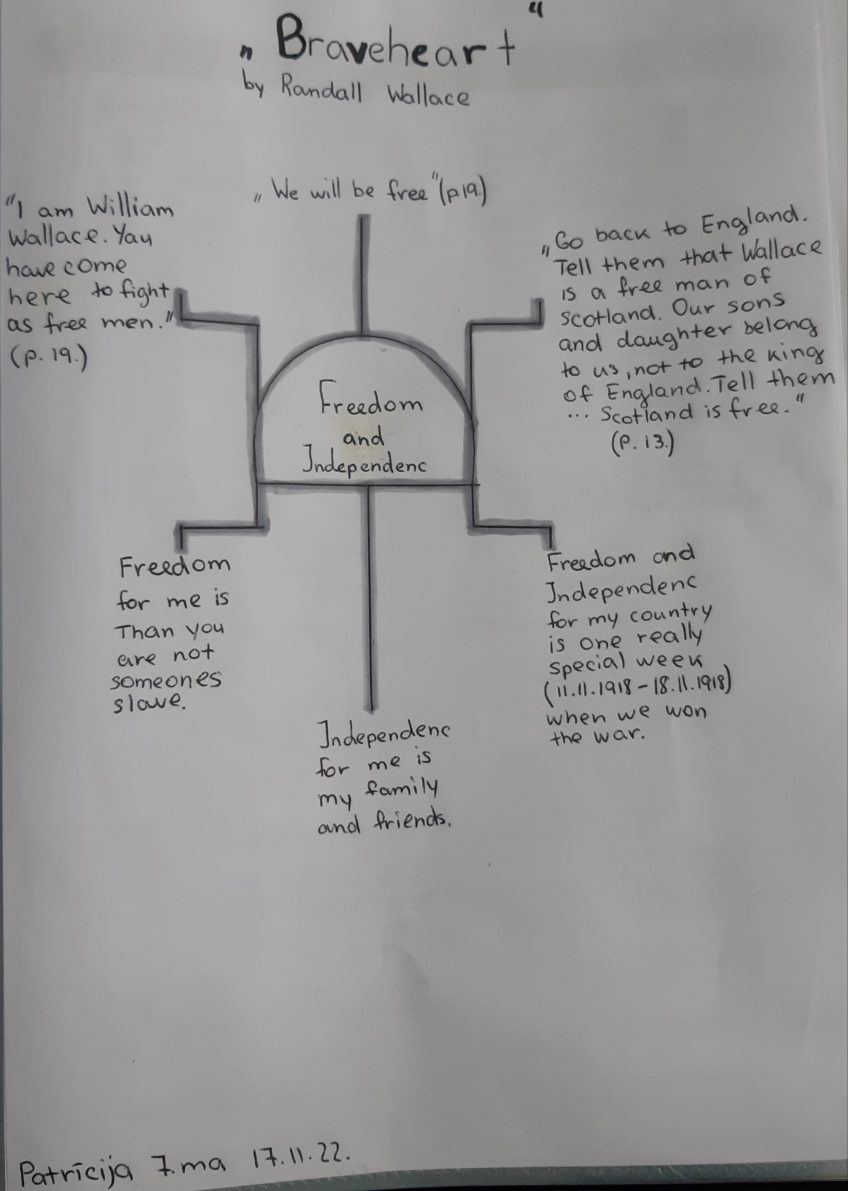 „Braveheart“
by Randall Wallace
"I am William
Wallace. Yay
have come
here to fight
as free men."
(p. 19.)
„We will be free" (p19.)
„Go back to England.
Tell them that Wallace
is a free man of
Scotland. Our sons
and daughter belong
to us, not to the king
of England. Tell them
... Scotland is free."
(P. 13.)
Freedom
and
Independenc
Freedom
for me is
Than you
are not
someones
slave.
Independenc
for me is
my family
and friends.
Freedom and
Independenc
for my country
is one really
special week
(11.11.1918 - 18.11.1918)
when we won
the war.
Patrīcija 7.ma 17.11.22.